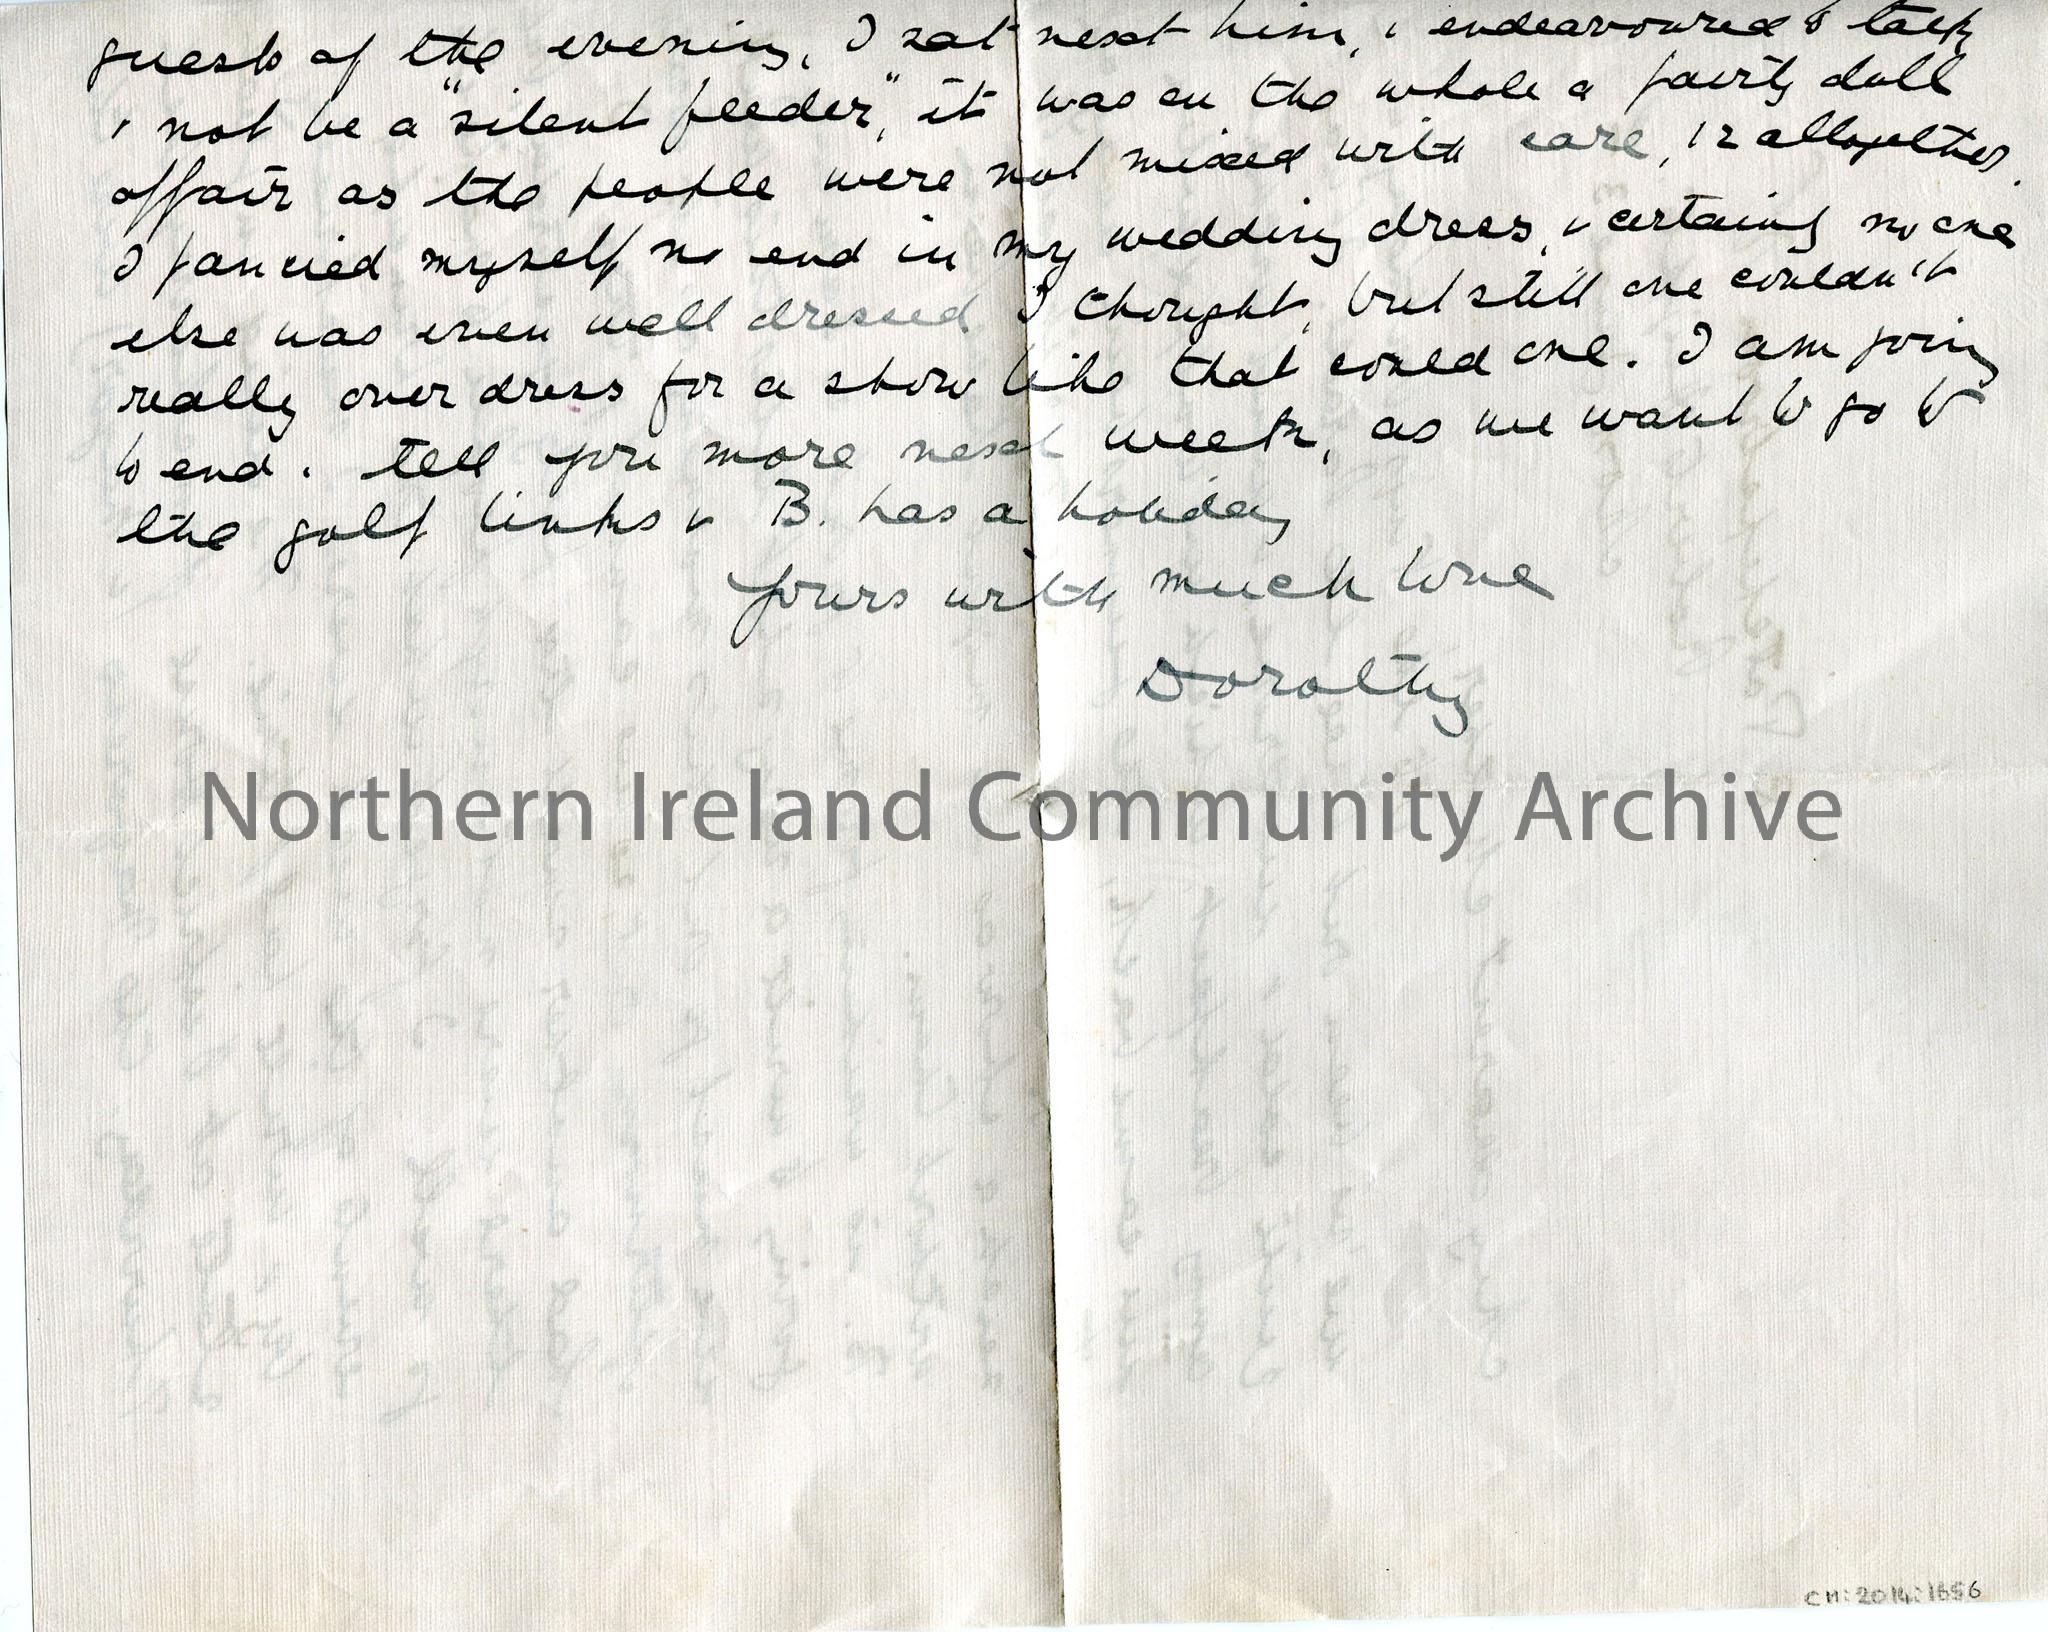 guests of the evening, I sat next him, & endeavoured to talk
& not be a "silent feeder", it was on the whole a fairly dull
affair as the people were not mixed with care, 12 altogether.
I fancied myself no end in my wedding dress, & certainly no one
else was even well dressed I thought, but still one couldn't
really over dress for a show like that could one. I am going
to end. tell you more next week, as we want to go to
the golf links & B. has a holiday
Yours with much love
Dorothy
Northern Ireland Community Archive
CM:2014:1656